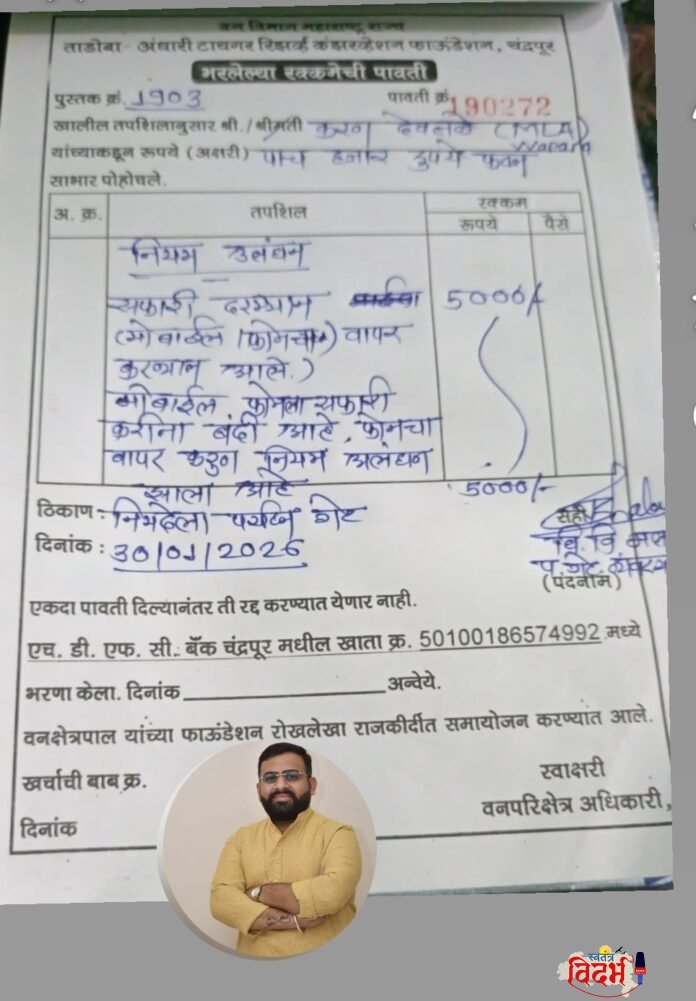 वन विभाग महाराष्ट्र राज्य
ताडोबा - अंधारी टायगर रिझर्व्ह कंझरव्हेशन फाऊंडेशन, चंद्रपूर
भरलेल्या रक्कमेची पावती
पुस्तक क्रं. 1903 पावती क्रं 190272
खालील तपशिलानुसार श्री./श्रीमती करण देवतळे (MLA) Warora
यांच्याकडून रूपये (अक्षरी) पाच हजार रुपये फक्त
साभार पोहोचले.
अ. क्र. तपशिल रक्कम
रूपये पैसे
नियम उलंघन
सफारी दरम्यान 5000/-
(मोबाईल फोनचा) वापर
करण्यात आले.)
मोबाईल फोनला सफारी
करीना बंदी आहे. फोनचा
वापर करुन नियम अलंघन
झाला आहे 5000/-
ठिकाण : निमढेला पर्यटन गेट
दिनांक : 30/01/2026
सही
(पदनाम)
एकदा पावती दिल्यानंतर ती रद्द करण्यात येणार नाही.
एच. डी. एफ. सी. बँक चंद्रपूर मधील खाता क्र. 50100186574992 मध्ये
भरणा केला. दिनांक अन्वेये.
वनक्षेत्रपाल यांच्या फाऊंडेशन रोखलेखा राजकीर्दीत समायोजन करण्यात आले.
खर्चाची बाब क्र. स्वाक्षरी
वनपरिक्षेत्र अधिकारी,
दिनांक
स्वतंत्र
विदर्भ